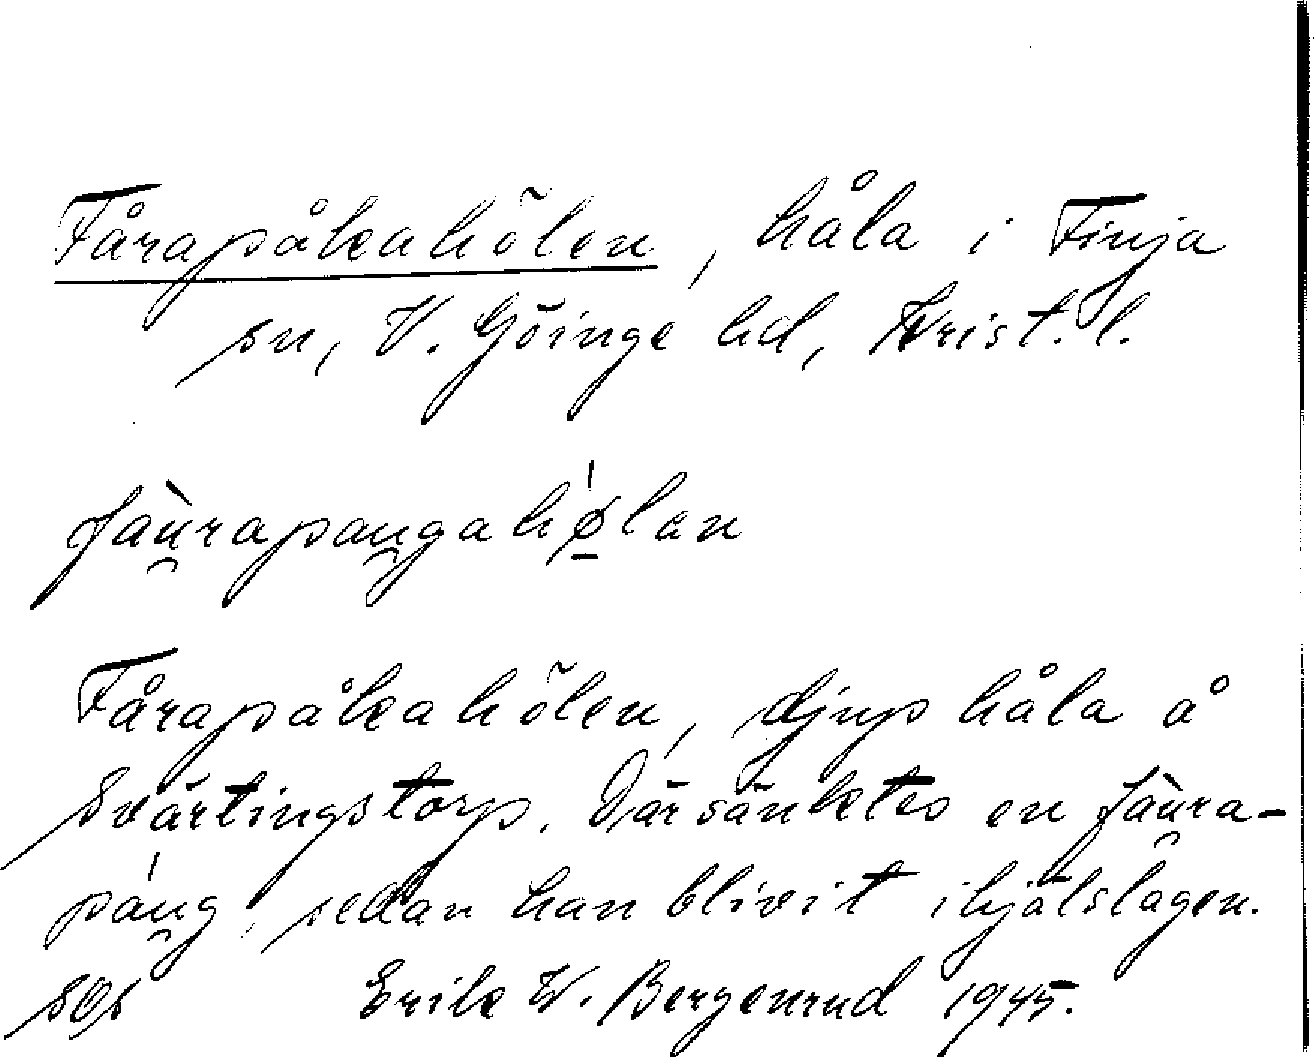 Fårapåkahölen, håla i Finja
sn, V. Göinge hd, Krist. l.
fàu̯rapau̯gahǿ̲lan
Fårapåkahölen, djup håla å
Svärtingstorp. Där sänktes en fàu̯ra-
páu̯g, sedan han blivit ihjälslagen.
Erik W. Bergenrud 1945.